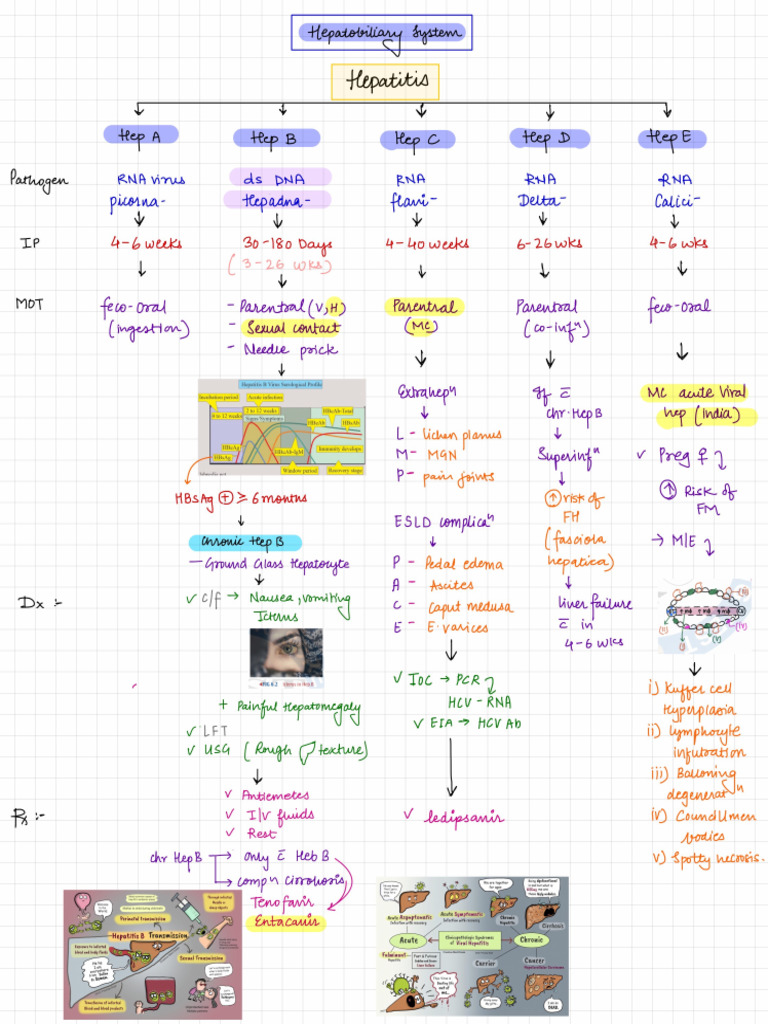 Hepatobiliary System
Hepatitis
Hep A
Hep B
Hep C
Hep D
Hep E
Pathogen
RNA virus
picorna-
ds DNA
Hepadna-
RNA
flavi-
RNA
Delta-
RNA
Calici-
IP
4-6 weeks
30-180 Days
(3-26 wks)
4-40 weeks
6-26wks
4-6 wks
MOT
feco-oral
(ingestion)
- Parentral (V,H)
- Sexual contact
- Needle prick
Parentral
(MC)
Parentral
(co-infⁿ)
feco-oral
Hepatitis B Virus Serological Profile
Incubation period
Acute infection
4 to 12 weeks
2 to 12 weeks
Signs/Symptoms
HBcAb-Total
HBeAb
HBsAb
HBeAg
HBsAg
HBcAb-IgM
Immunity develops
Window period
Recovery stage
HBsAg ⊕ ≥ 6 months
Chronic Hep B
- Ground Glass Hepatocyte
Extrahepⁿ
L - lichen planus
M - MGN
P - pain joints
ESLD complicaⁿ
P - Pedal edema
A - Ascites
C - Caput medusa
E - E. varices
If c̄
chr. Hep B
Superinfⁿ
↑ risk of
FH
(fasciola
hepatica)
liver failure
c̄ in
4-6 wks
MC acute Viral
hep (India)
✓ Preg ♀
↑ Risk of
FM
→ M/E
Dx :-
✓ C/f → Nausea, vomiting
Icterus
+ Painful Hepatomegaly
✓ LFT
✓ USG (Rough texture)
✓ IOC → PCR
HCV-RNA
✓ EIA → HCV Ab
i) Kuffer cell
Hyperplasia
ii) lymphocyte
infiltration
iii) Balloning
degeneratⁿ
iv) Councilmen
bodies
v) Spotty necrosis.
Rx :-
✓ Antiemetes
✓ I/V fluids
✓ Rest
✓ ledipsavir
chr Hep B → only c̄ Heb B
→ compⁿ cirrohosis
Tenofavir
Entacavir
Perinatal Transmission
Hepatitis B Transmission
Sexual Transmission
Exposure to infected
blood and body fluids
Transfusion of infected
Blood and blood products
Acute Asymptomatic
Infection with recovery
Acute Symptomatic
Infection with recovery
Chronic
Hepatitis
Cirrhosis
Acute
Clinicopathologic Syndromes
of Viral Hepatitis
Chronic
Fulminant
Hepatitis
Carrier
Cancer
Hepatocellular Carcinoma